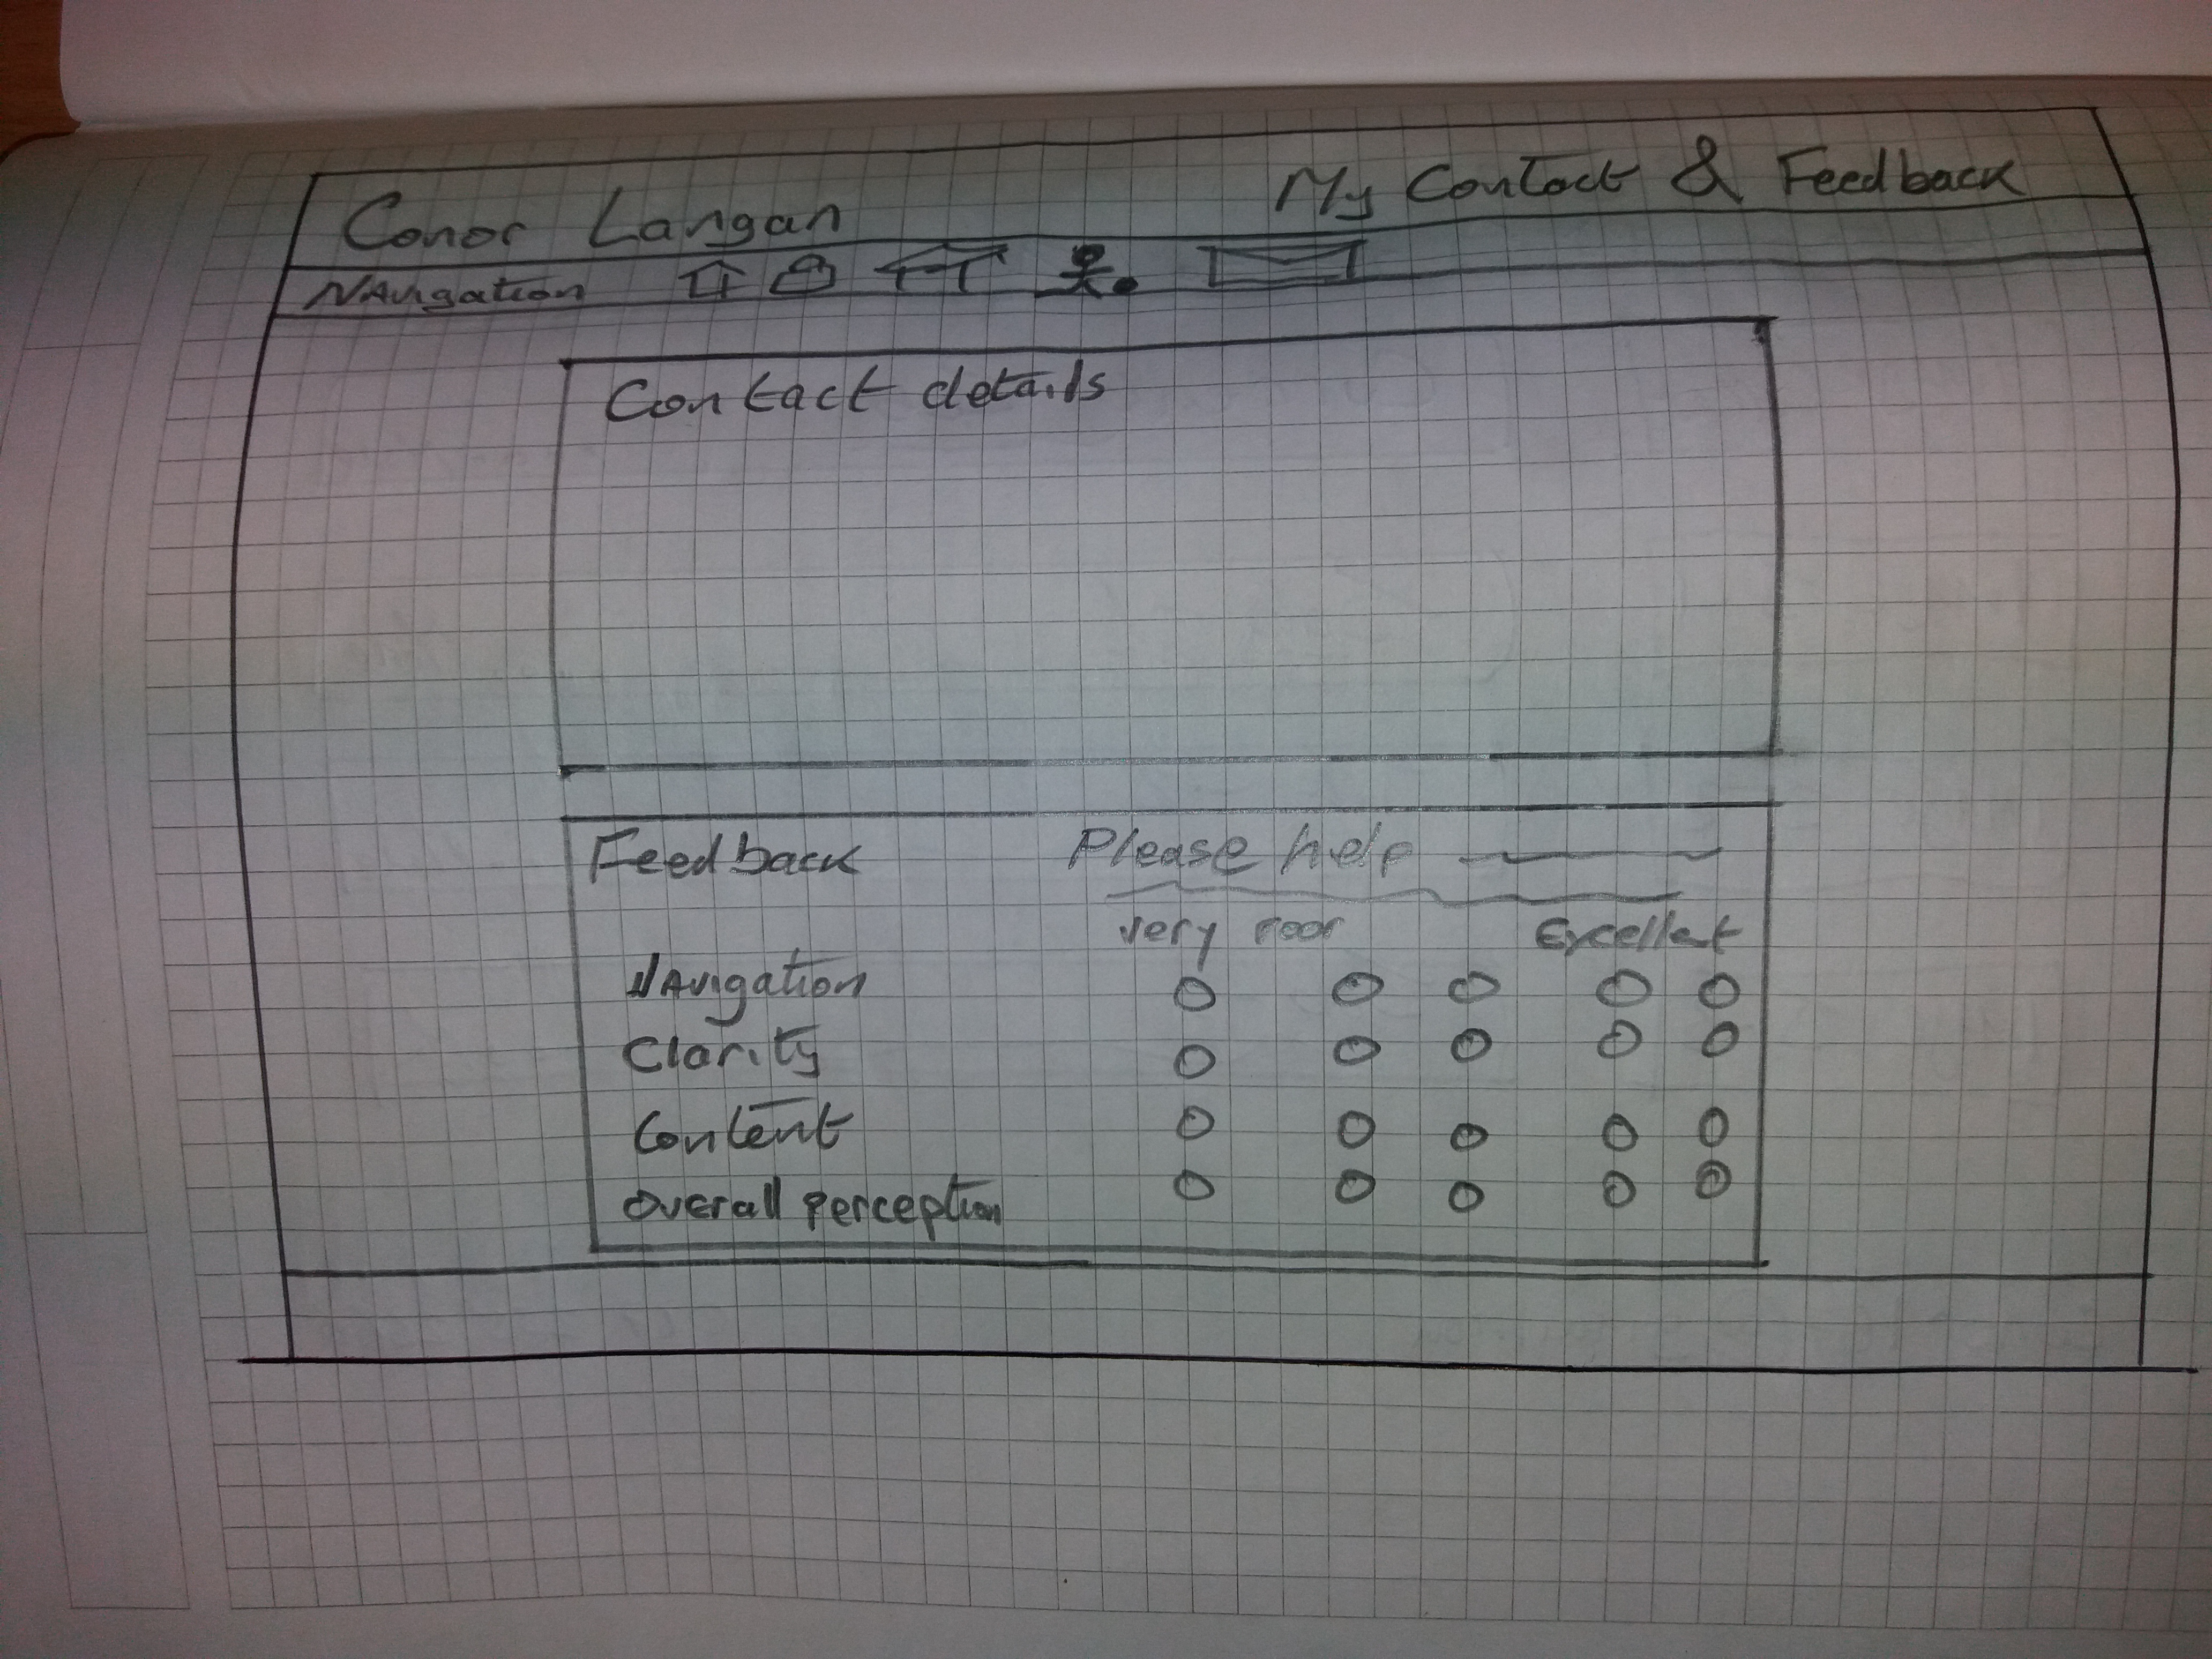 Conor Langan My Contact & Feedback
Navigation
Contact details
Feedback Please help
Very Poor Excellent
Navigation
Clarity
Content
Overall Perception